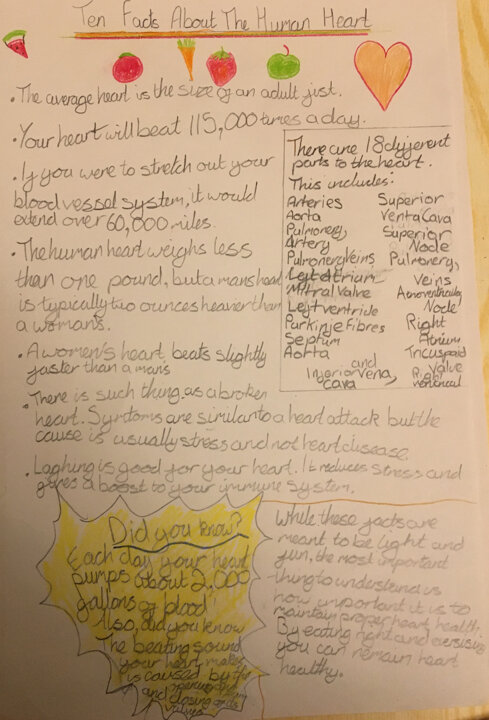 Ten Facts About The Human Heart
• The average heart is the size of an adult fist.
• Your heart will beat 115,000 times a day.
• If you were to stretch out your
blood vessel system, it would
extend over 60,000 miles.
• The human heart weighs less
than one pound, but a mans heart
is typically two ounces heavier than
a woman's.
• A women's heart, beats slightly
faster than a mans
• There is such thing, as a broken
heart. Symtoms are similar to a heart attack but the
cause is usually stress and not heart disease.
• Laghing is good for your heart. It reduces stress and
gives a boost to your immune system.
There are 18 different
parts to the heart.
This includes:
Arteries
Aorta
Pulmonery
Artery
Pulmonery Veins
Left Atrium
Mitral Valve
Left ventricle
Parkinje Fibres
Septum
Aorta
and
Inferior Vena,
Cava
Superior
Venta Cava
Superior
Node
Pulmonery,
Veins
Node
Right
Atrium
Tricuspaid
Valve
Right
Did you know?
Each day your heart
pumps about 2,000
gallons of blood
Also, did you know
The beating sound
your heart makes
is caused by the
opening
and closing of its
valves
While these facts are
meant to be light and
fun, the most important
thing to understand is
how important it is to
maintain proper heart health.
By eating right and exersising
you can remain heart
healthy.